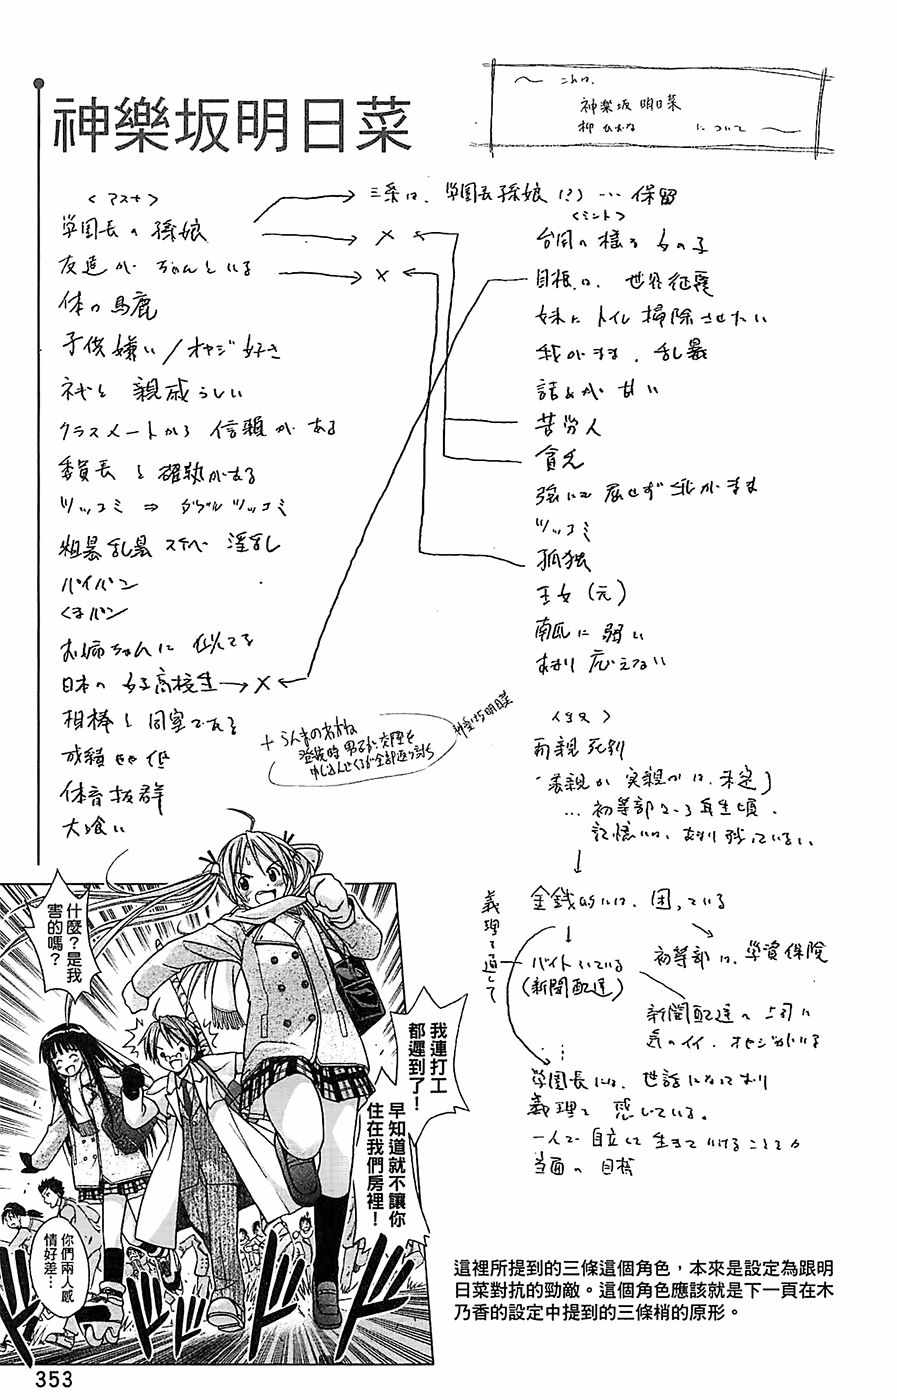 神樂坂明日菜
〜 これは、
神楽坂 明日菜
について 〜
＜アスナ＞
学園長の孫娘
三条は、学園長孫娘(?) … 保留
体力馬鹿
子供嫌い/オヤジ好き
クラスメートから 信頼が ある
委員長と確執がある
ツッコミ ⇒ ダブルツッコミ
粗暴乱暴 スケベ 淫乱
パイパン
くまパン
お姉ちゃんに 似てる
日本の 女子高校生
相棒と同室である
成績 低
体育抜群
大喰い
＜ミント＞
目標は、世界征服
妹に トイレ掃除させたい
我がまま、乱暴
詰めが 甘い
苦労人
貧乏
ツッコミ
孤独
王女(元)
南瓜に 弱い
あまり 応えない
両親 死別
養親か 実親かは、未定
… 初等部2〜3年生頃、
記憶は、あまり 残っていない
金銭的には、困っている
義理を通して
バイトしている
(新聞配達)
初等部は、学資保険
新聞配達の 上司に
気のイイ、オヤジがいる
学園長には、世話になっており
義理を 感じている。
一人で 自立して 生きていけることが
当面の 目標
神楽坂明日菜
什麼？是我害的嗎？
我連打工都遲到了！
早知道就不讓你住在我們房裡！
你們兩人感情好差…
這裡所提到的三條這個角色，本來是設定為跟明
日菜對抗的勁敵。這個角色應該就是下一頁在木
乃香的設定中提到的三條梢的原形。
353